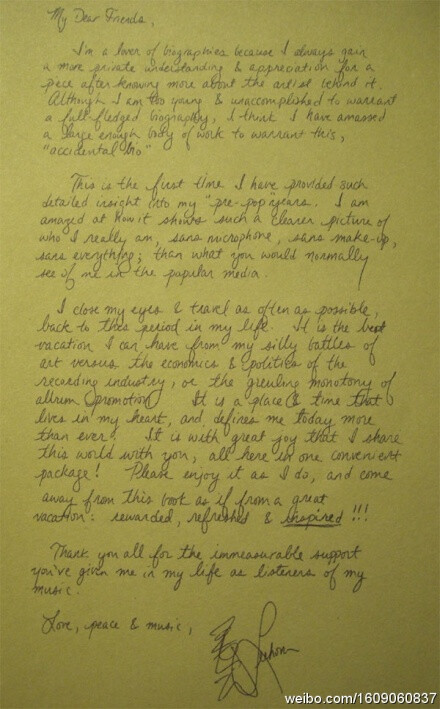 My Dear Friends,
I'm a lover of biographies because I always gain
a more private understanding & appreciation for a
piece after knowing more about the artist behind it.
Although I am too young & unaccomplished to warrant
a full-fledged biography, I think I have amassed
a large enough body of work to warrant this,
"accidental bio"
This is the first time I have provided such
detailed insight into my "pre-pop" years. I am
amazed at how it shows such a clearer picture of
who I really am, sans microphone, sans make-up,
sans everything; than what you would normally
see of me in the popular media.
I close my eyes & travel as often as possible,
back to this period in my life. It is the best
vacation I can have from my silly battles of
art versus the economics & politics of the
recording industry, or the grueling monotony of
album promotion. It is a place & time that
lives in my heart, and defines me today more
than ever. It is with great joy that I share
this world with you, all here in one convenient
package! Please enjoy it as I do, and come
away from this book as if from a great
vacation: rewarded, refreshed & inspired!!!
Thank you all for the immeasurable support
you've given me in my life as listeners of my
music.
Love, peace & music,
Leehom
weibo.com/1609060837